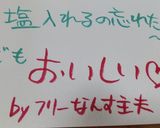 塩入れるの忘れた〜
ども
おいしい♡
byフリーなんす主夫